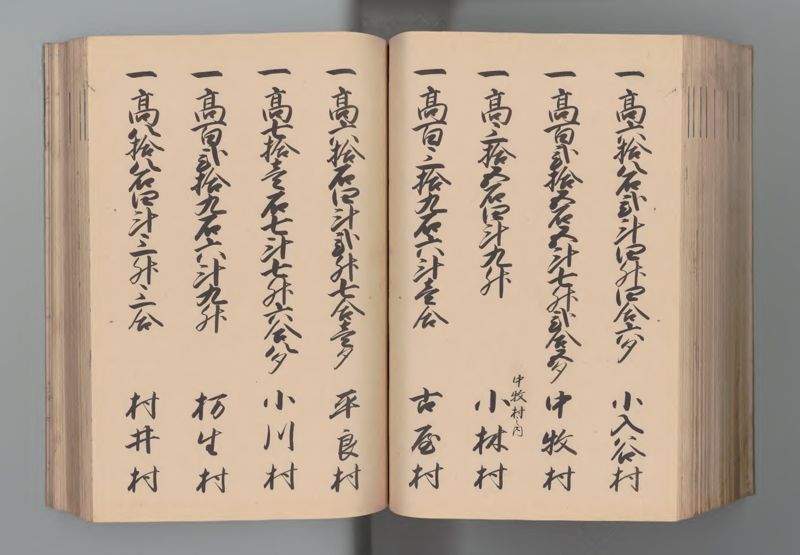 一 高六拾八石弐斗四升四合六夕 小入谷村
一 高百弐拾五石五斗七升弐合五夕 中牧村
中牧村之内
一 高三拾五石四斗九升 小林村
一 高百三拾九石六斗壱合 古屋村
一 高六拾石四斗弐升七合壱夕 平良村
一 高七拾壱石七斗七升六合八夕 小川村
一 高百弐拾九石六斗九升 杤生村
一 高八拾八石四斗三升三合 村井村